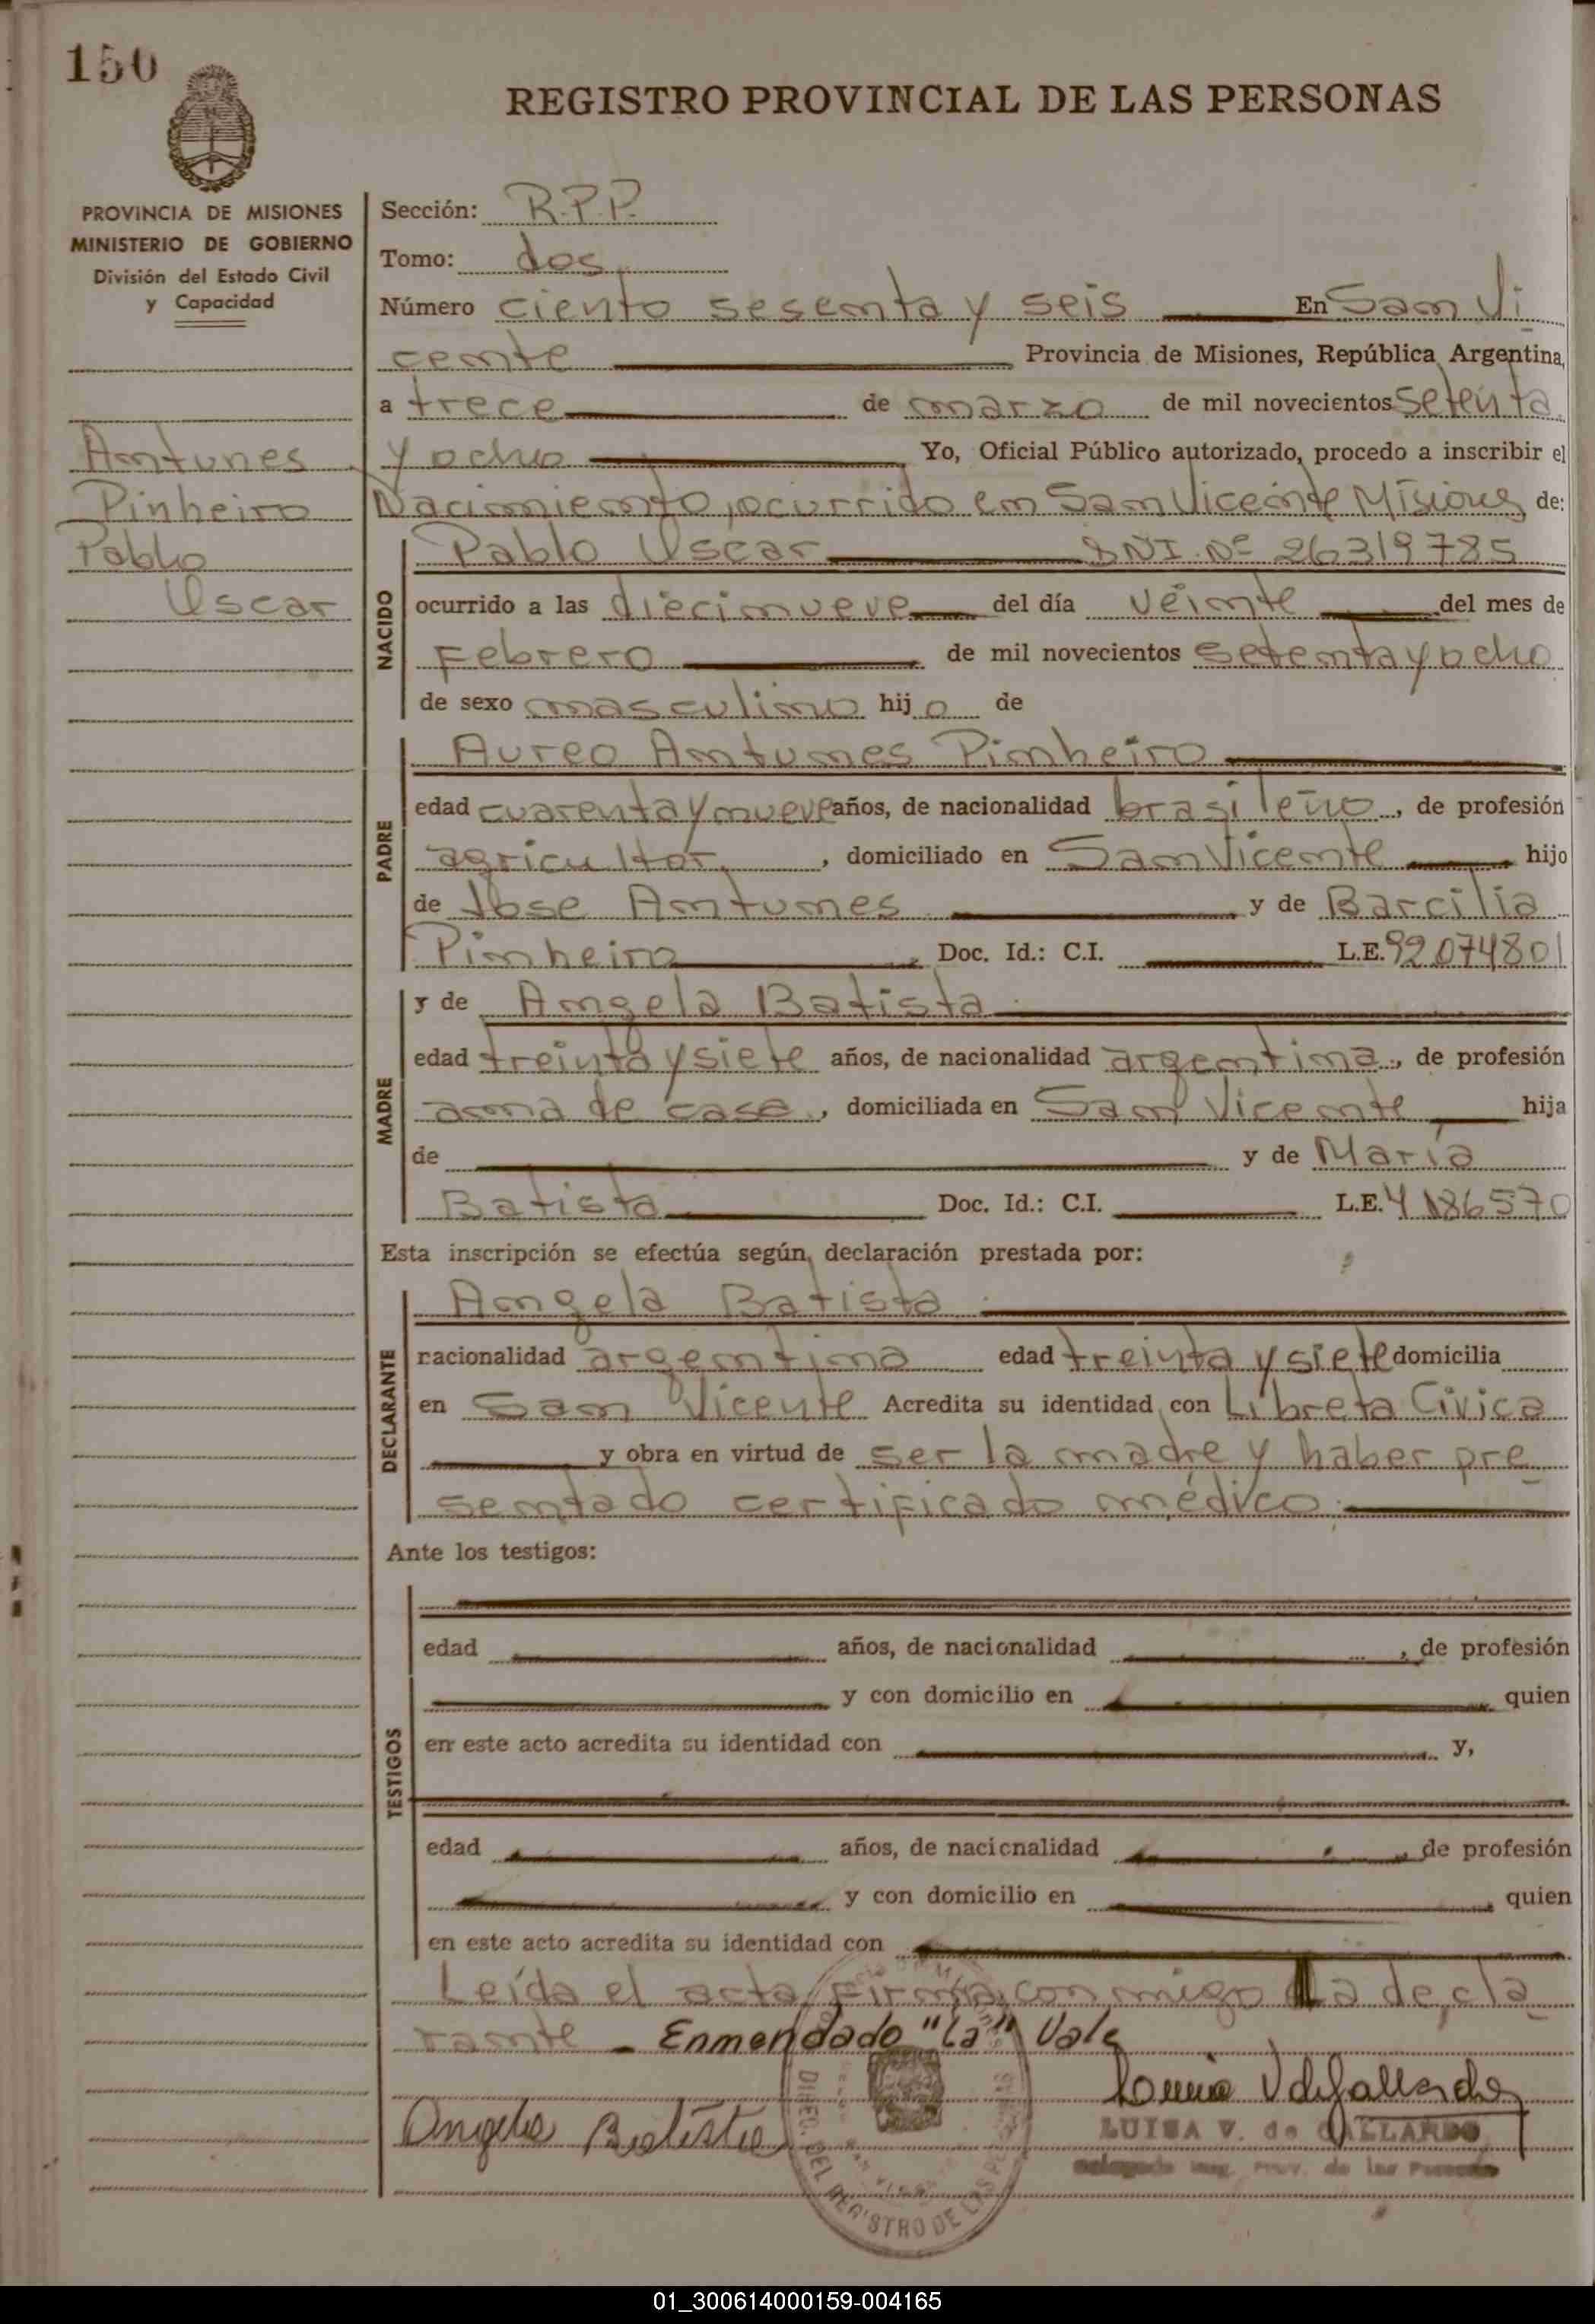 150
REGISTRO PROVINCIAL DE LAS PERSONAS
PROVINCIA DE MISIONES
MINISTERIO DE GOBIERNO
División del Estado Civil
y Capacidad
Antunes
Pinheiro
Pablo
Oscar
Sección: R.P.P.
Tomo: dos
Número ciento sesenta y seis En San Vi
cente Provincia de Misiones, República Argentina,
a trece de marzo de mil novecientos setenta
y ocho Yo, Oficial Público autorizado, procedo a inscribir el
Nacimiento, ocurrido en San Vicente Misiones de:
NACIDO
Pablo Oscar DNI. Nº 26319785
ocurrido a las diecinueve del día veinte del mes de
Febrero de mil novecientos setenta y ocho
de sexo masculino hijo de
PADRE
Aureo Antunes Pinheiro
edad cuarenta y nueve años, de nacionalidad brasileño, de profesión
agricultor, domiciliado en San Vicente hijo
de Jose Antunes y de Barcilia
Pinheiro, Doc. Id.: C.I. L.E. 92074801
MADRE
y de Angela Batista
edad treinta y siete años, de nacionalidad argentina, de profesión
ama de casa, domiciliada en San Vicente hija
de y de María
Batista Doc. Id.: C.I. L.E. 4186570
Esta inscripción se efectúa según declaración prestada por:
DECLARANTE
Angela Batista
nacionalidad argentina edad treinta y siete domicilia
en San Vicente Acredita su identidad con Libreta Cívica
y obra en virtud de ser la madre y haber pre
sentado certificado médico.
Ante los testigos:
TESTIGOS
edad años, de nacionalidad , de profesión
y con domicilio en quien
en este acto acredita su identidad con y,
edad años, de nacionalidad de profesión
y con domicilio en quien
en este acto acredita su identidad con
Leída el acta, firma conmigo La decla
rante - Enmendado "La" Vale
Angela Batista
LUISA V. de GALLARDO
DEL REGISTRO DE LAS
01_300614000159-004165